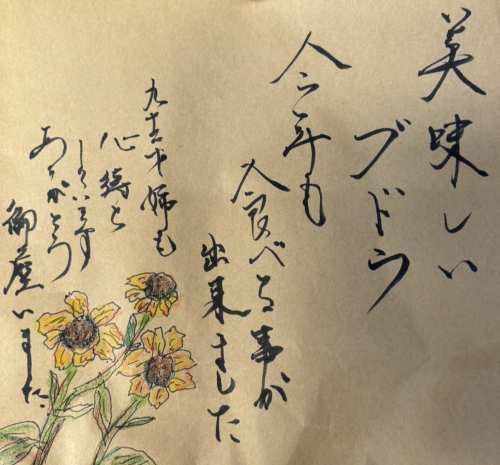 美味しい
ブドウ
今年も
食べる事が
出来ました
九十才姉も
心待と
しています
ありがとう
御座いました